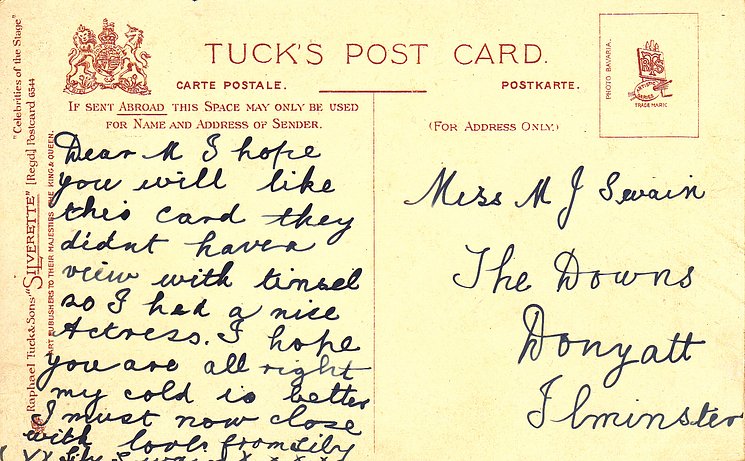 TUCK'S POST CARD.
CARTE POSTALE.
POSTKARTE.
IF SENT ABROAD THIS SPACE MAY ONLY BE USED
FOR NAME AND ADDRESS OF SENDER.
(FOR ADDRESS ONLY.)
"Celebrities of the Stage"
Raphael Tuck & Sons' "SILVERETTE" [Regd] Postcard 6544
ART PUBLISHERS TO THEIR MAJESTIES THE KING & QUEEN.
PHOTO BAVARIA.
ARTISTIC
SERIES
TRADE MARK
Dear M I hope
you will like
this card they
didnt have a
view with tinsel
so I had a nice
Actress. I hope
you are all right
my cold is better
I must now close
with love from Lily
Miss M J Swain
The Downs
Donyatt
Ilminster